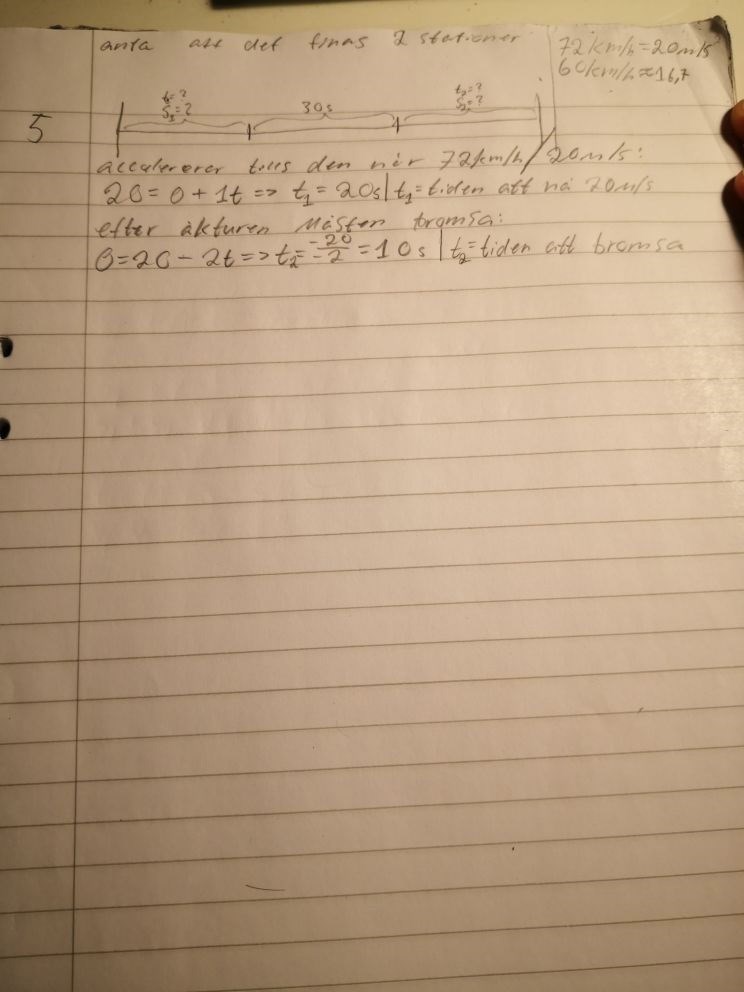 anta att det finns 2 stationer
72km/h=20m/s
60km/h≈16,7
t₁=?
S₁=?
30s
t₂=?
S₂=?
5
accelererar tills den når 72km/h/20m/s:
20=0+1t=>t₁=20s|t₁=tiden att nå 20m/s
efter åkturen måsten bromsa:
0=20-2t=>t₂=-20/-2=10s|t₂=tiden att bromsa